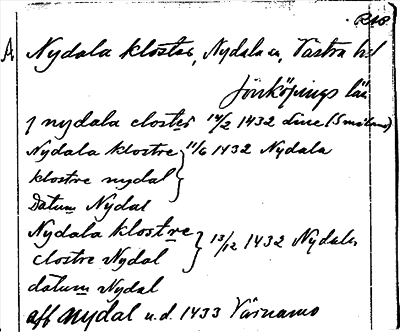 A Nydala kloster, Nydala sn, Västra hd
Jönköpings län
j nydala closter 14/2 1432
Nydala klostre } 11/6 1432 Nydala
klostre nydal
Datum Nydal
Nydala klostre } 13/12 1432 Nydala
clostre Nydal
datum Nydal
aff nydal u.d. 1433 Värnamo